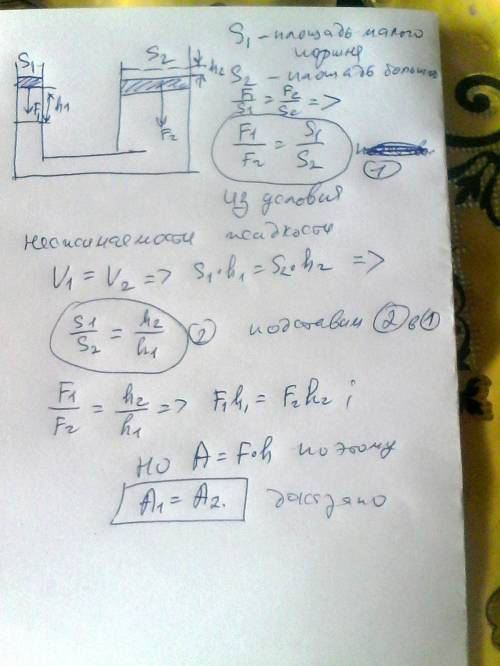 S₁ - площадь малого
поршня
S₂ - площадь большого
S₁ S₂ h₂
F₁ h₁ F₂
F₁/S₁ = F₂/S₂ =>
F₁/F₂ = S₁/S₂
①
из условия
несжимаемости жидкости
V₁ = V₂ => S₁·h₁ = S₂·h₂ =>
S₁/S₂ = h₂/h₁ ② подставим ② в ①
F₁/F₂ = h₂/h₁ => F₁h₁ = F₂h₂ ;
но A = F·h поэтому
A₁ = A₂. доказано